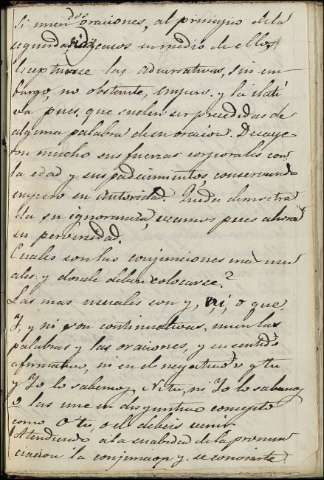 Si unen dos oraciones, al principio de la
segunda; y á veces en medio de ellos.
Exceptuase las adversativas, sin em-
bargo, no obstante, empero, y la ilati-
va pues, que suelen ser precedidas de
alguna palabra de su oracion. Decaye-
ron mucho sus fuerzas corporales con
la edad y sus padecimientos, conservando
empero su autoridad. Queda demostra
da su ignorancia, veamos pues ahora
su perversidad.
Cuales son las conjunciones mas usu
ales y donde deben colocarse?
Las mas usuales son y, ni, o que
Y, y ni son continuativas, unen las
palabras y las oraciones, y en sentido
afirmativo, ni en el negativo v g tu
y Yo lo sabemos, Ni tu, ni Yo lo sabemos
o las une en disyuntivo concepto
como O tu, o el debeis venir
Atendiendo a la suabidad de la pronun
ciacion la conjuncion y se convierte